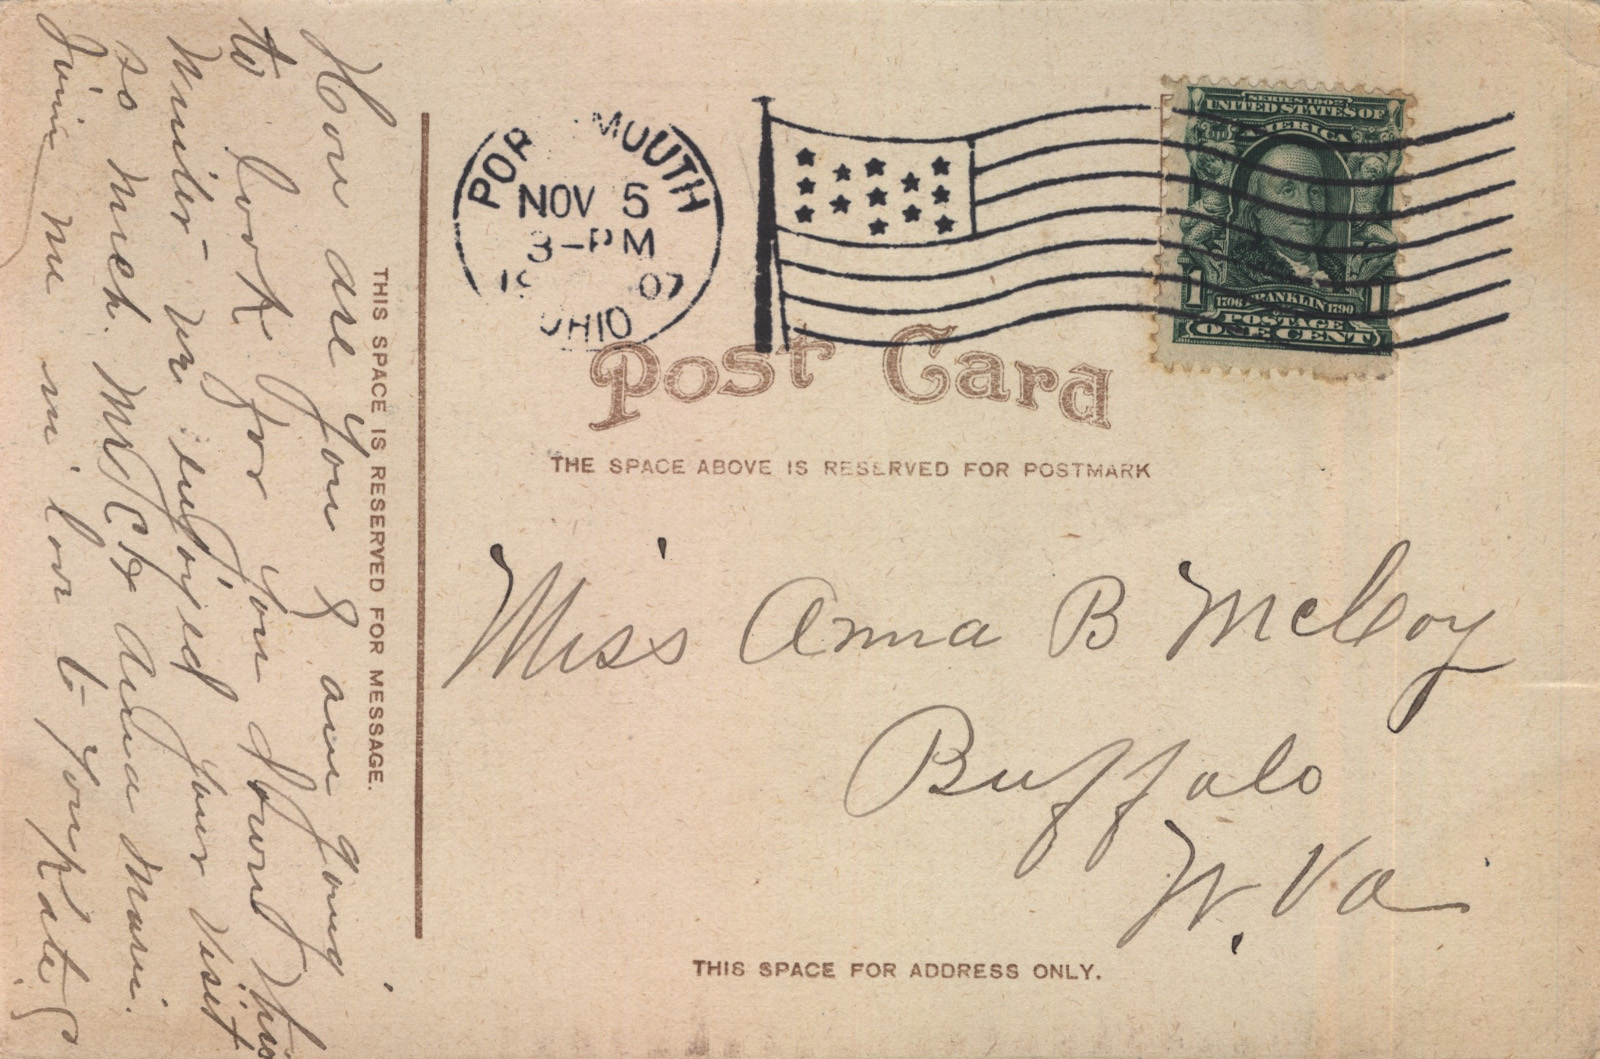 How are you I am going
to look for you down this
winter we enjoyed your visit
so much. Mr C & Anna Marie.
Join me in love to you Kate G
THIS SPACE IS RESERVED FOR MESSAGE.
POR MOUTH
NOV 5
3-PM
19 07
OHIO
SERIES 1902
UNITED STATES OF
AMERICA
1 1
1706 FRANKLIN 1790
POSTAGE
ONE CENT
Post Card
THE SPACE ABOVE IS RESERVED FOR POSTMARK
Miss Anna B McCoy
Buffalo
W. Va
THIS SPACE FOR ADDRESS ONLY.